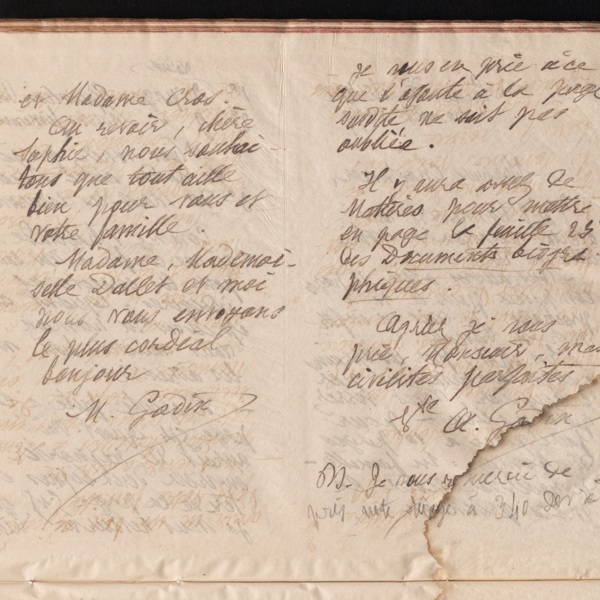 et Madame Cros.
Au revoir, chère
Sophie, nous souhai-
tons que tout aille
bien pour vous et
votre famille.
Madame, Mademoi-
selle Dallet et moi
nous vous envoyons
le plus cordial
bonjour
M. Godin
Je vous en prie à ce
que l'ajouté à la page
susdite ne soit pas
oubliée.
Il y aura assez de
matières pour mettre
en page la feuille 25
des Documents biogra-
phiques.
Agréez je vous
prie, Monsieur, mes
civilités parfaites
Vve A. Godin
Je vous de
pris note à 340